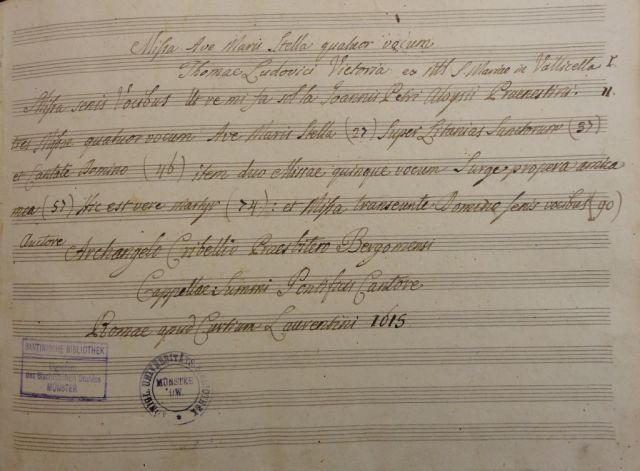 Missa Ave Maris Stella quatuor vocum
Thomae Ludovici Victoria ex MS S. Mariae in Vallicella I.
Missa senis Vocibus Ut re mi fa sol la Joannis Petri Aloysii Praenestini. II.
tres Missae quatuor vocum Ave Maris Stella (27) Super Litanias Sanctorum (37)
et Cantate Domino (46) item duo Missae quinque vocum Surge propera amica
mea (57) Hic est vere martyr (74): et Missa transeunte Domino senis vocibus (90)
Auctore
Archangelo Cribellio Praesbitero Bergomensi
Cappellae Summi Pontificis Cantore
Romae apud Curtium Laurentini 1615
SANTINISCHE BIBLIOTHEK
des Bischöflichen Stuhles
MÜNSTER
KÖNIGL. UNIVERSITÄTS
MÜNSTER
I/W.